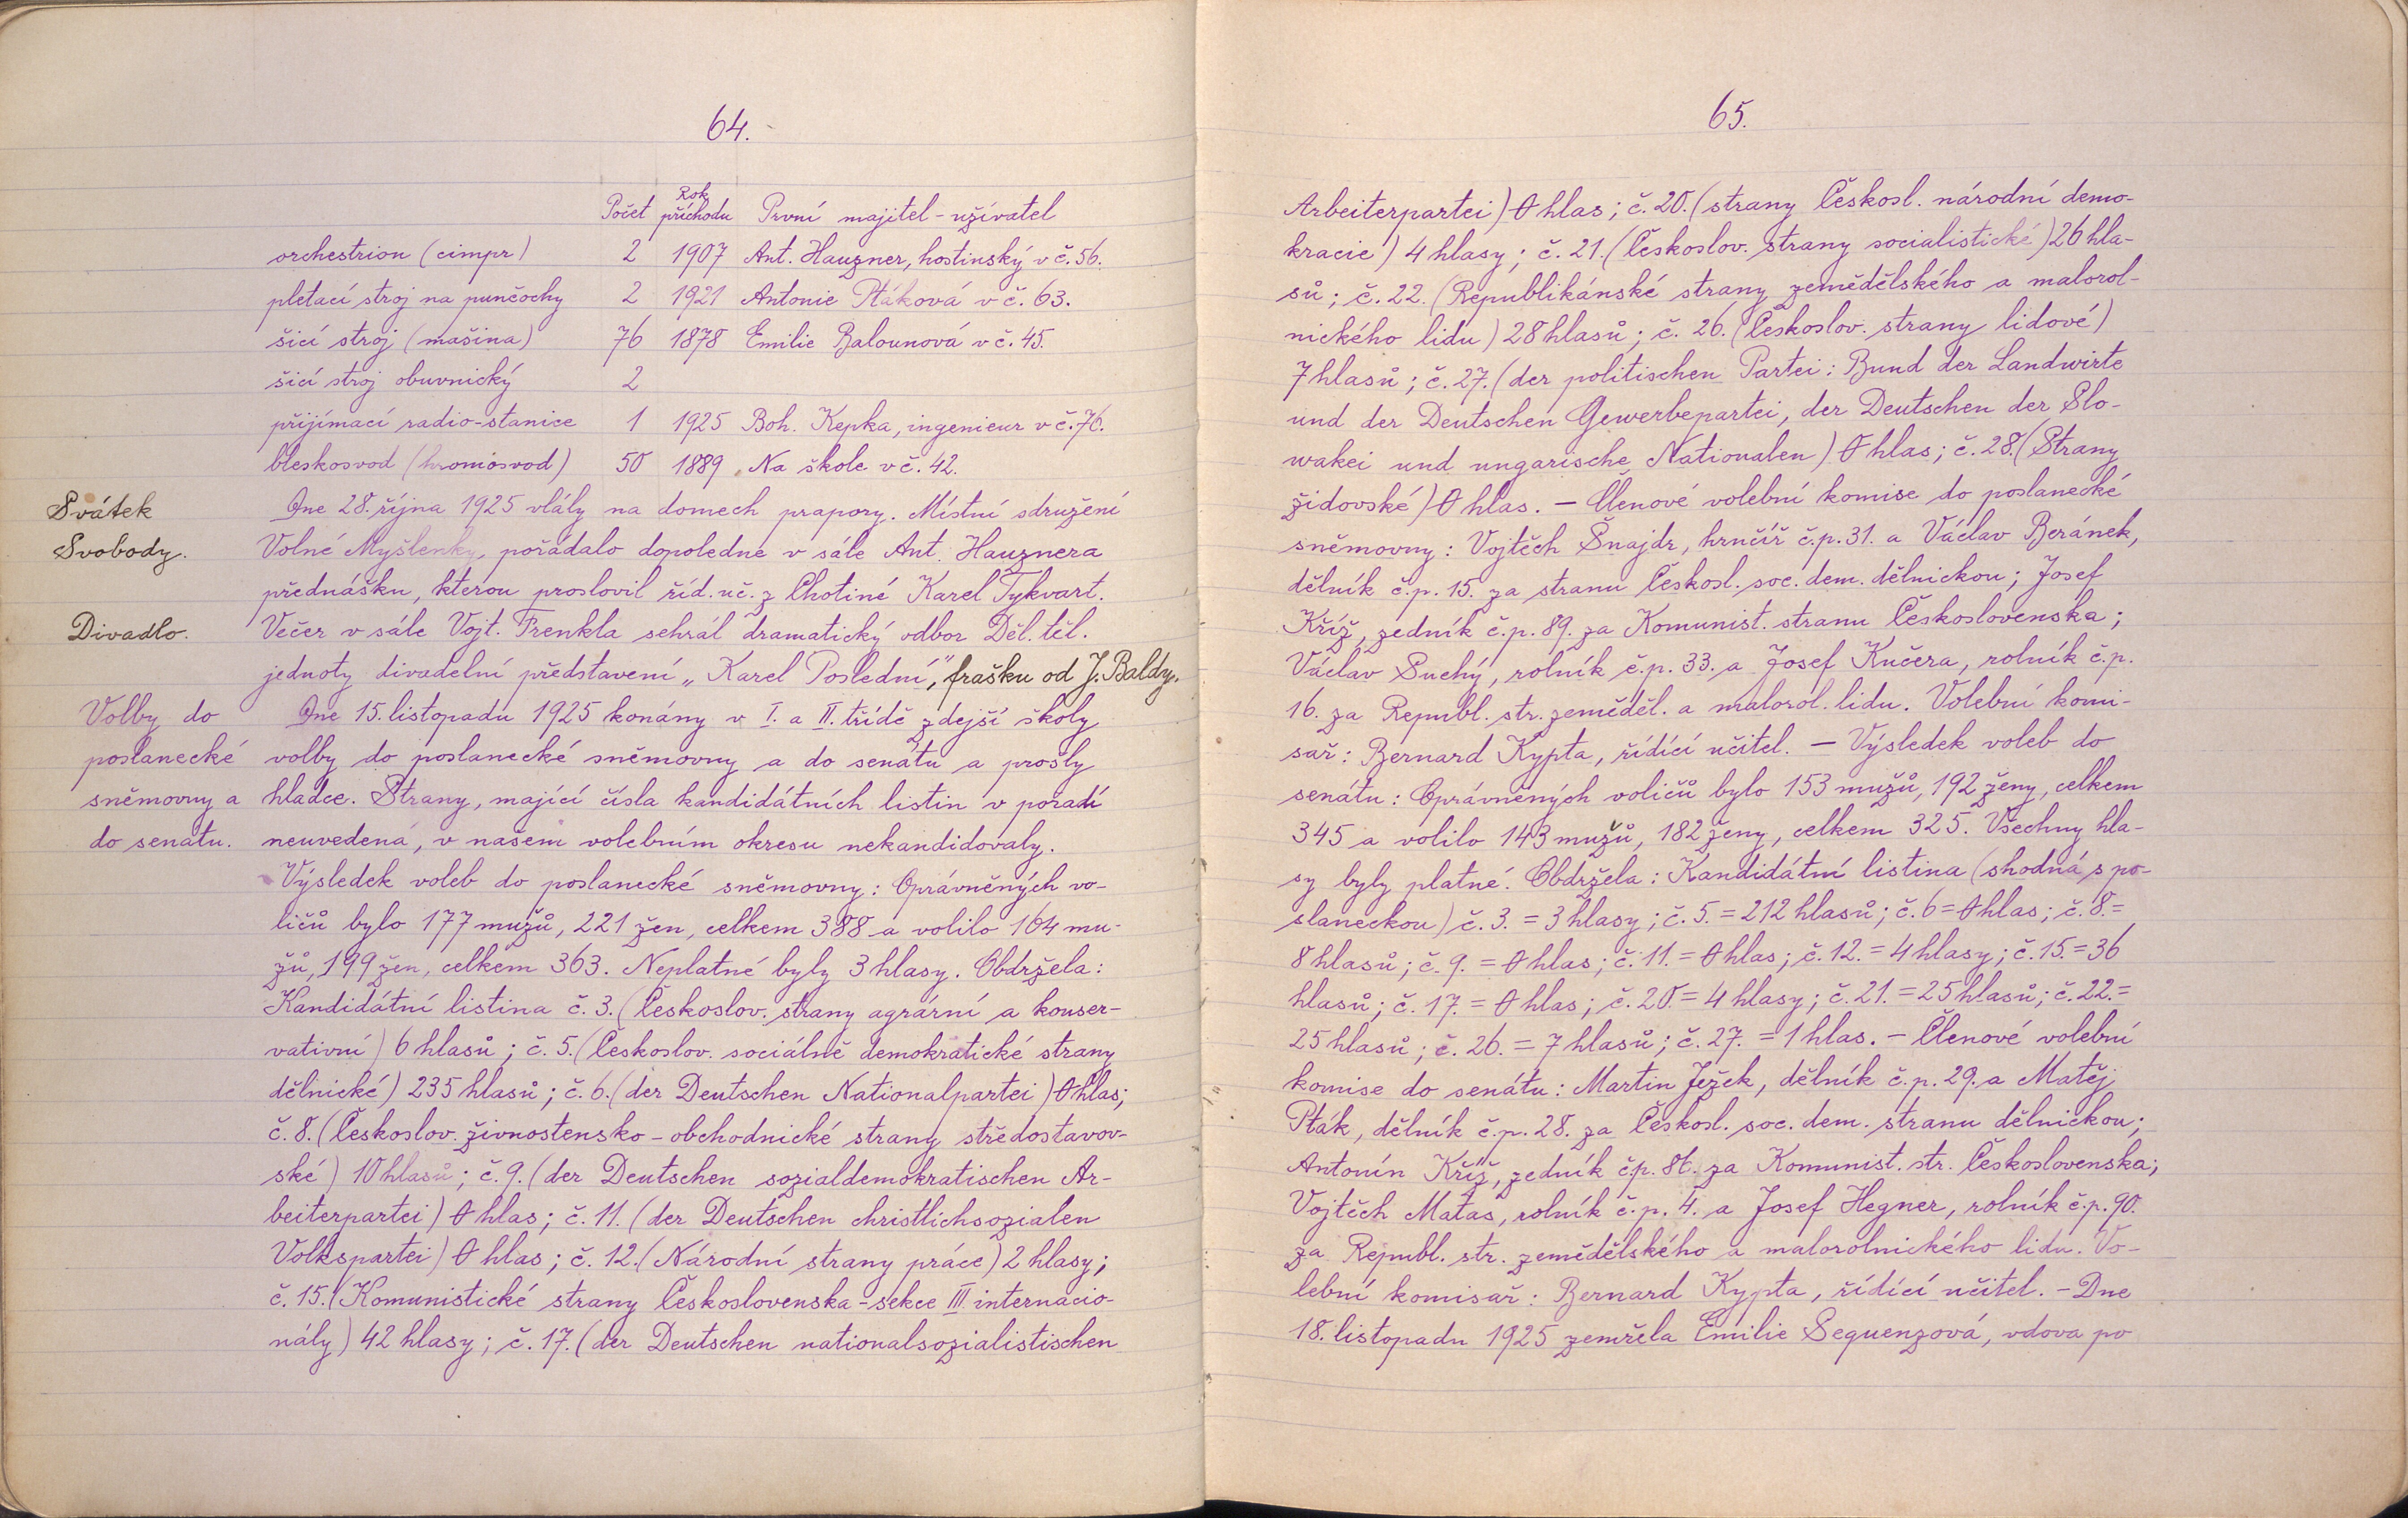 64.
Počet Rok příchodu První majitel - uživatel
orchestrion (cimpr) 2 1907 Ant. Hauzner, hostinský v č. 56.
pletací stroj na punčochy 2 1921 Antonie Ptáková v č. 63.
šicí stroj (mašina) 76 1878 Emilie Balounová v č. 45.
šicí stroj obuvnický 2
přijímací radio-stanice 1 1925 Boh. Kepka, ingenieur v č. 76.
bleskosvod (hromosvod) 50 1889 Na škole v č. 42.
Svátek
Svobody.
Dne 28. října 1925 vlály na domech prapory. Místní sdružení
Volné Myšlenky, pořádalo dopoledne v sále Ant. Hauznera
přednášku, kterou proslovil říd. uč. z Chotiné Karel Tykvart.
Divadlo.
Večer v sále Vojt. Frenkla sehrál dramatický odbor Děl. těl.
jednoty divadelní představení „Karel Poslední", frašku od J. Baldy.
Volby do
poslanecké
sněmovny a
do senátu.
Dne 15. listopadu 1925 konány v I. a II. třídě zdejší školy
volby do poslanecké sněmovny a do senátu a prošly
hladce. Strany, mající čísla kandidátních listin v pořadí
neuvedená, v našem volebním okresu nekandidovaly.
Výsledek voleb do poslanecké sněmovny: Oprávněných vo-
ličů bylo 177 mužů, 221 žen, celkem 388 a volilo 164 mu-
žů, 199 žen, celkem 363. Neplatné byly 3 hlasy. Obdržela:
Kandidátní listina č. 3. (Českoslov. strany agrární a konser-
vativní) 6 hlasů; č. 5. (Českoslov. sociálně demokratické strany
dělnické) 235 hlasů; č. 6. (der Deutschen Nationalpartei) 0 hlas;
č. 8. (Českoslov. živnostensko - obchodnické strany středostavov-
ské) 10 hlasů; č. 9. (der Deutschen sozialdemokratischen Ar-
beiterpartei) 0 hlas; č. 11. (der Deutschen christlichsozialen
Volkspartei) 0 hlas; č. 12. (Národní strany práce) 2 hlasy;
č. 15. (Komunistické strany Československa - sekce III. internacio-
nály) 42 hlasy; č. 17. (der Deutschen nationalsozialistischen
65.
Arbeiterpartei) 0 hlas; č. 20. (strany Českosl. národní demo-
kracie) 4 hlasy; č. 21. (Českoslov. strany socialistické) 26 hla-
sů; č. 22. (Republikánské strany zemědělského a malorol-
nického lidu) 28 hlasů; č. 26. (Českoslov. strany lidové)
7 hlasů; č. 27. (der politischen Partei: Bund der Landwirte
und der Deutschen Gewerbepartei, der Deutschen der Slo-
wakei und ungarische Nationalen) 0 hlas; č. 28. (Strany
židovské) 0 hlas. — Členové volební komise do poslanecké
sněmovny: Vojtěch Šnajdr, hrnčíř č.p. 31. a Václav Beránek,
dělník č.p. 15. za stranu Českosl. soc. dem. dělnickou; Josef
Kříž, zedník č.p. 89. za Komunist. stranu Československa;
Václav Suchý, rolník č.p. 33. a Josef Kučera, rolník č.p.
16. za Republ. str. zeměděl. a malorol. lidu. Volební komi-
sař: Bernard Kypta, řídící učitel. — Výsledek voleb do
senátu: Oprávněných voličů bylo 153 mužů, 192 ženy, celkem
345 a volilo 143 mužů, 182 ženy, celkem 325. Všechny hla-
sy byly platné. Obdržela: Kandidátní listina (shodná s po-
slaneckou) č. 3. = 3 hlasy; č. 5. = 212 hlasů; č. 6 = 0 hlas; č. 8. =
8 hlasů; č. 9. = 0 hlas; č. 11. = 0 hlas; č. 12. = 4 hlasy; č. 15. = 36
hlasů; č. 17. = 0 hlas; č. 20. = 4 hlasy; č. 21. = 25 hlasů; č. 22. =
25 hlasů; č. 26. = 7 hlasů; č. 27. = 1 hlas. — Členové volební
komise do senátu: Martin Ježek, dělník č.p. 29. a Matěj
Pták, dělník č.p. 28. za Českosl. soc. dem. stranu dělnickou;
Antonín Kříž, zedník č.p. 86. za Komunist. str. Československa;
Vojtěch Matas, rolník č.p. 4. a Josef Hegner, rolník č.p. 90.
za Republ. str. zemědělského a malorolnického lidu. Vo-
lební komisař: Bernard Kypta, řídící učitel. — Dne
18. listopadu 1925 zemřela Emilie Sequenzová, vdova po